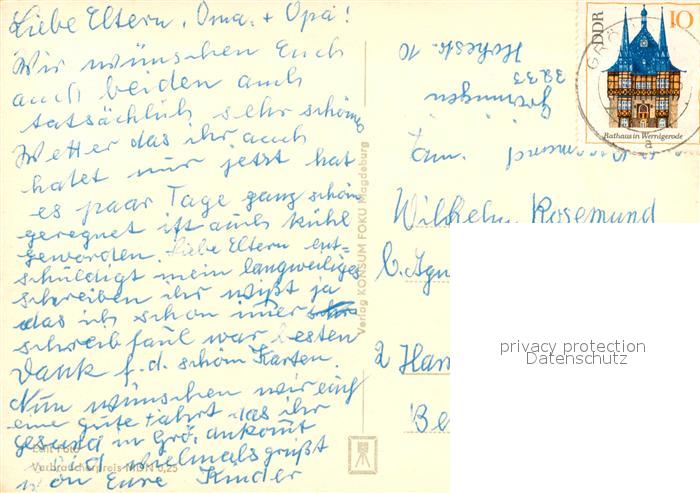 Liebe Eltern, Oma. + Opa!
Wir wünschen Euch
auch beiden auch
tatsächlich sehr schönes
Wetter das ihr auch
hatet nur jetzt hat
es paar Tage ganz schön
geregnet ist auch kühl
geworden. Liebe Eltern ent-
schuldigt mein langweiliges
schreiben ihr wißt ja
das ich schon imer
schreibfaul war besten
Dank f. d. schön Karten.
Nun wünschen wir euch
eine gute Fahrt das ihr
gesund in Grö. ankomt
vielmals grüßt
von Eure Kinder
Echt Foto
Verbraucherpreis MDN 0,25
Verlag KONSUM FOKU Magdeburg
DDR
10
Rathaus in Wernigerode
a
Gröningen
3233
Hohestr. 10
Fam.
Wilhelm Rosemund
b. Agn
2 Ham
Be
privacy protection
Datenschutz